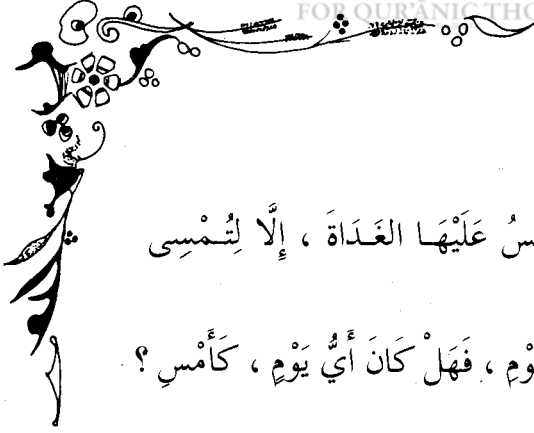 FOR QUR'ĀNIC THO
سُ عَلَيْهَا الغَدَاةَ ، إِلَّا لِتُمْسِى
وْمِ ، فَهَلْ كَانَ أَىُّ يَوْمٍ ، كَأَمْسِ ؟